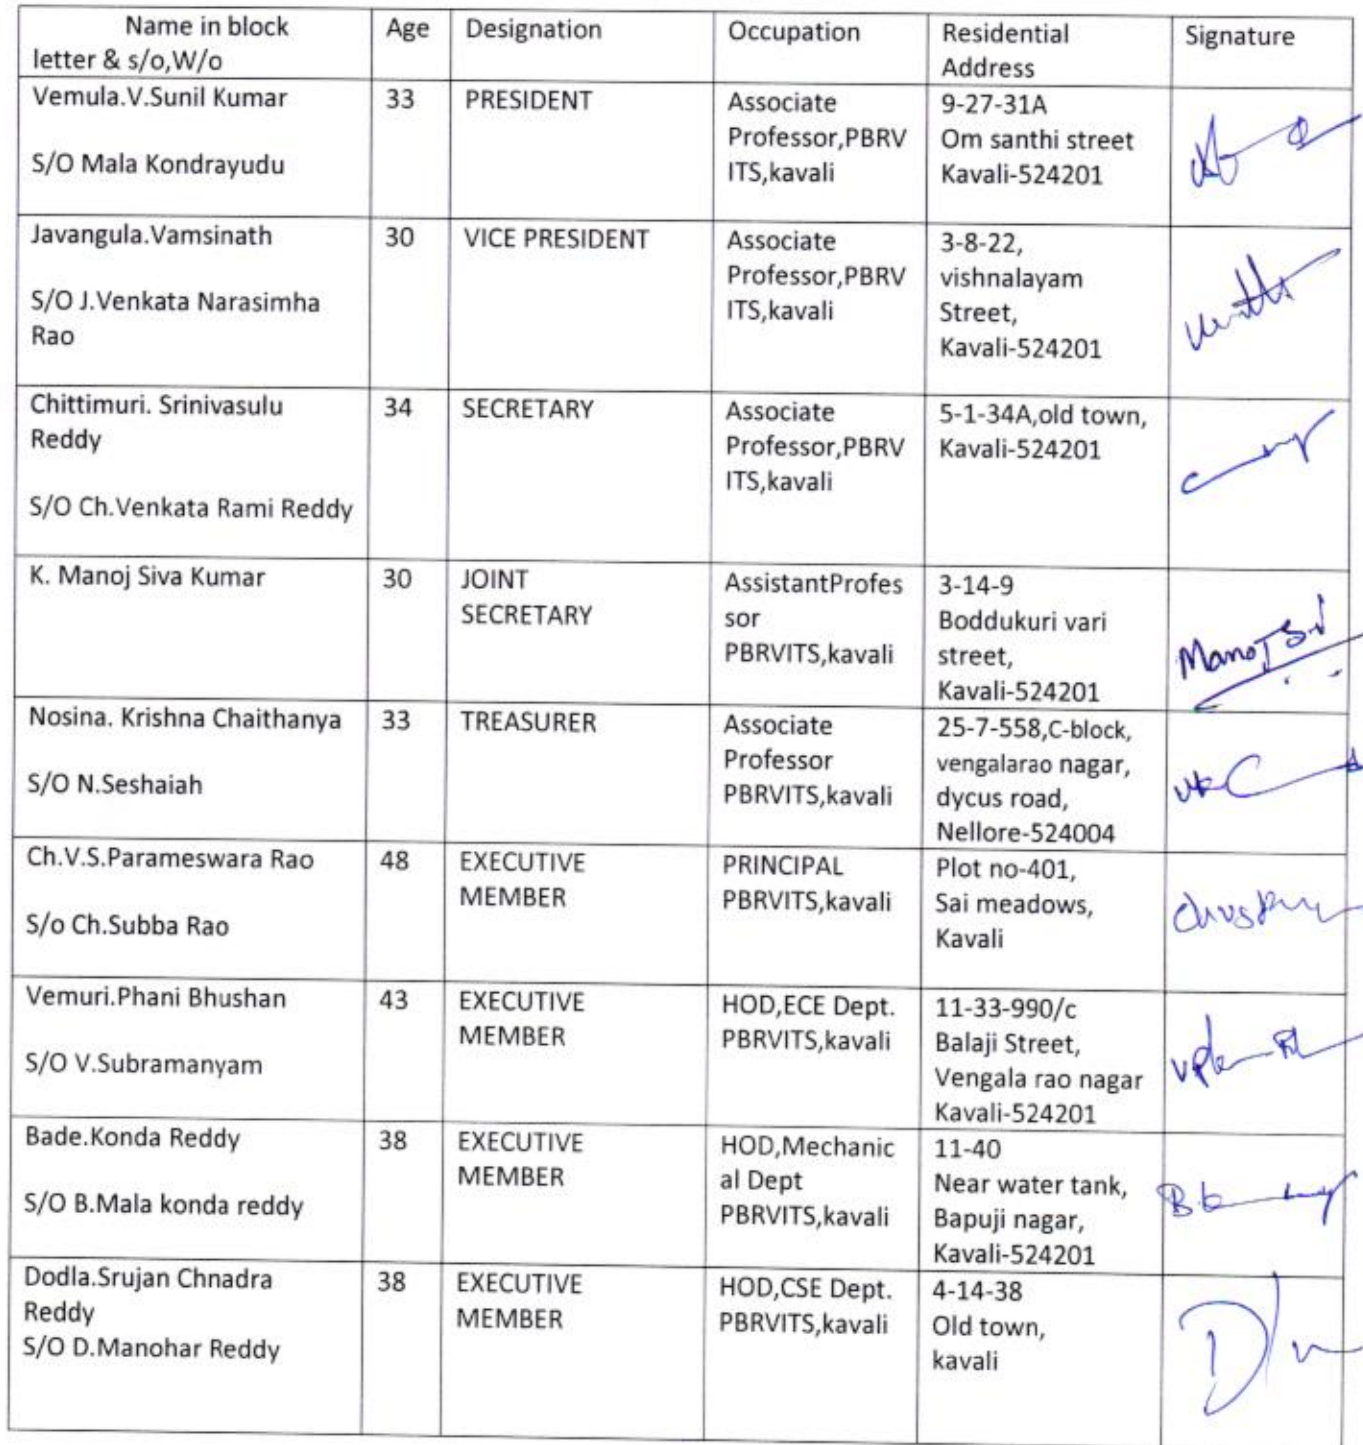 Name in block
letter & s/o,W/o
Age
Designation
Occupation
Residential
Address
Signature
Vemula.V.Sunil Kumar
S/O Mala Kondrayudu
33
PRESIDENT
Associate
Professor,PBRV
ITS,kavali
9-27-31A
Om santhi street
Kavali-524201
Javangula.Vamsinath
S/O J.Venkata Narasimha
Rao
30
VICE PRESIDENT
Associate
Professor,PBRV
ITS,kavali
3-8-22,
vishnalayam
Street,
Kavali-524201
Chittimuri. Srinivasulu
Reddy
S/O Ch.Venkata Rami Reddy
34
SECRETARY
Associate
Professor,PBRV
ITS,kavali
5-1-34A,old town,
Kavali-524201
K. Manoj Siva Kumar
30
JOINT
SECRETARY
AssistantProfes
sor
PBRVITS,kavali
3-14-9
Boddukuri vari
street,
Kavali-524201
Manoj
Nosina. Krishna Chaithanya
S/O N.Seshaiah
33
TREASURER
Associate
Professor
PBRVITS,kavali
25-7-558,C-block,
vengalarao nagar,
dycus road,
Nellore-524004
Ch.V.S.Parameswara Rao
S/o Ch.Subba Rao
48
EXECUTIVE
MEMBER
PRINCIPAL
PBRVITS,kavali
Plot no-401,
Sai meadows,
Kavali
Vemuri.Phani Bhushan
S/O V.Subramanyam
43
EXECUTIVE
MEMBER
HOD,ECE Dept.
PBRVITS,kavali
11-33-990/c
Balaji Street,
Vengala rao nagar
Kavali-524201
Bade.Konda Reddy
S/O B.Mala konda reddy
38
EXECUTIVE
MEMBER
HOD,Mechanic
al Dept
PBRVITS,kavali
11-40
Near water tank,
Bapuji nagar,
Kavali-524201
Dodla.Srujan Chnadra
Reddy
S/O D.Manohar Reddy
38
EXECUTIVE
MEMBER
HOD,CSE Dept.
PBRVITS,kavali
4-14-38
Old town,
kavali